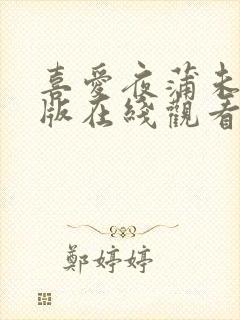 喜愛夜蒲未
版在綫觀看
鄭婷婷